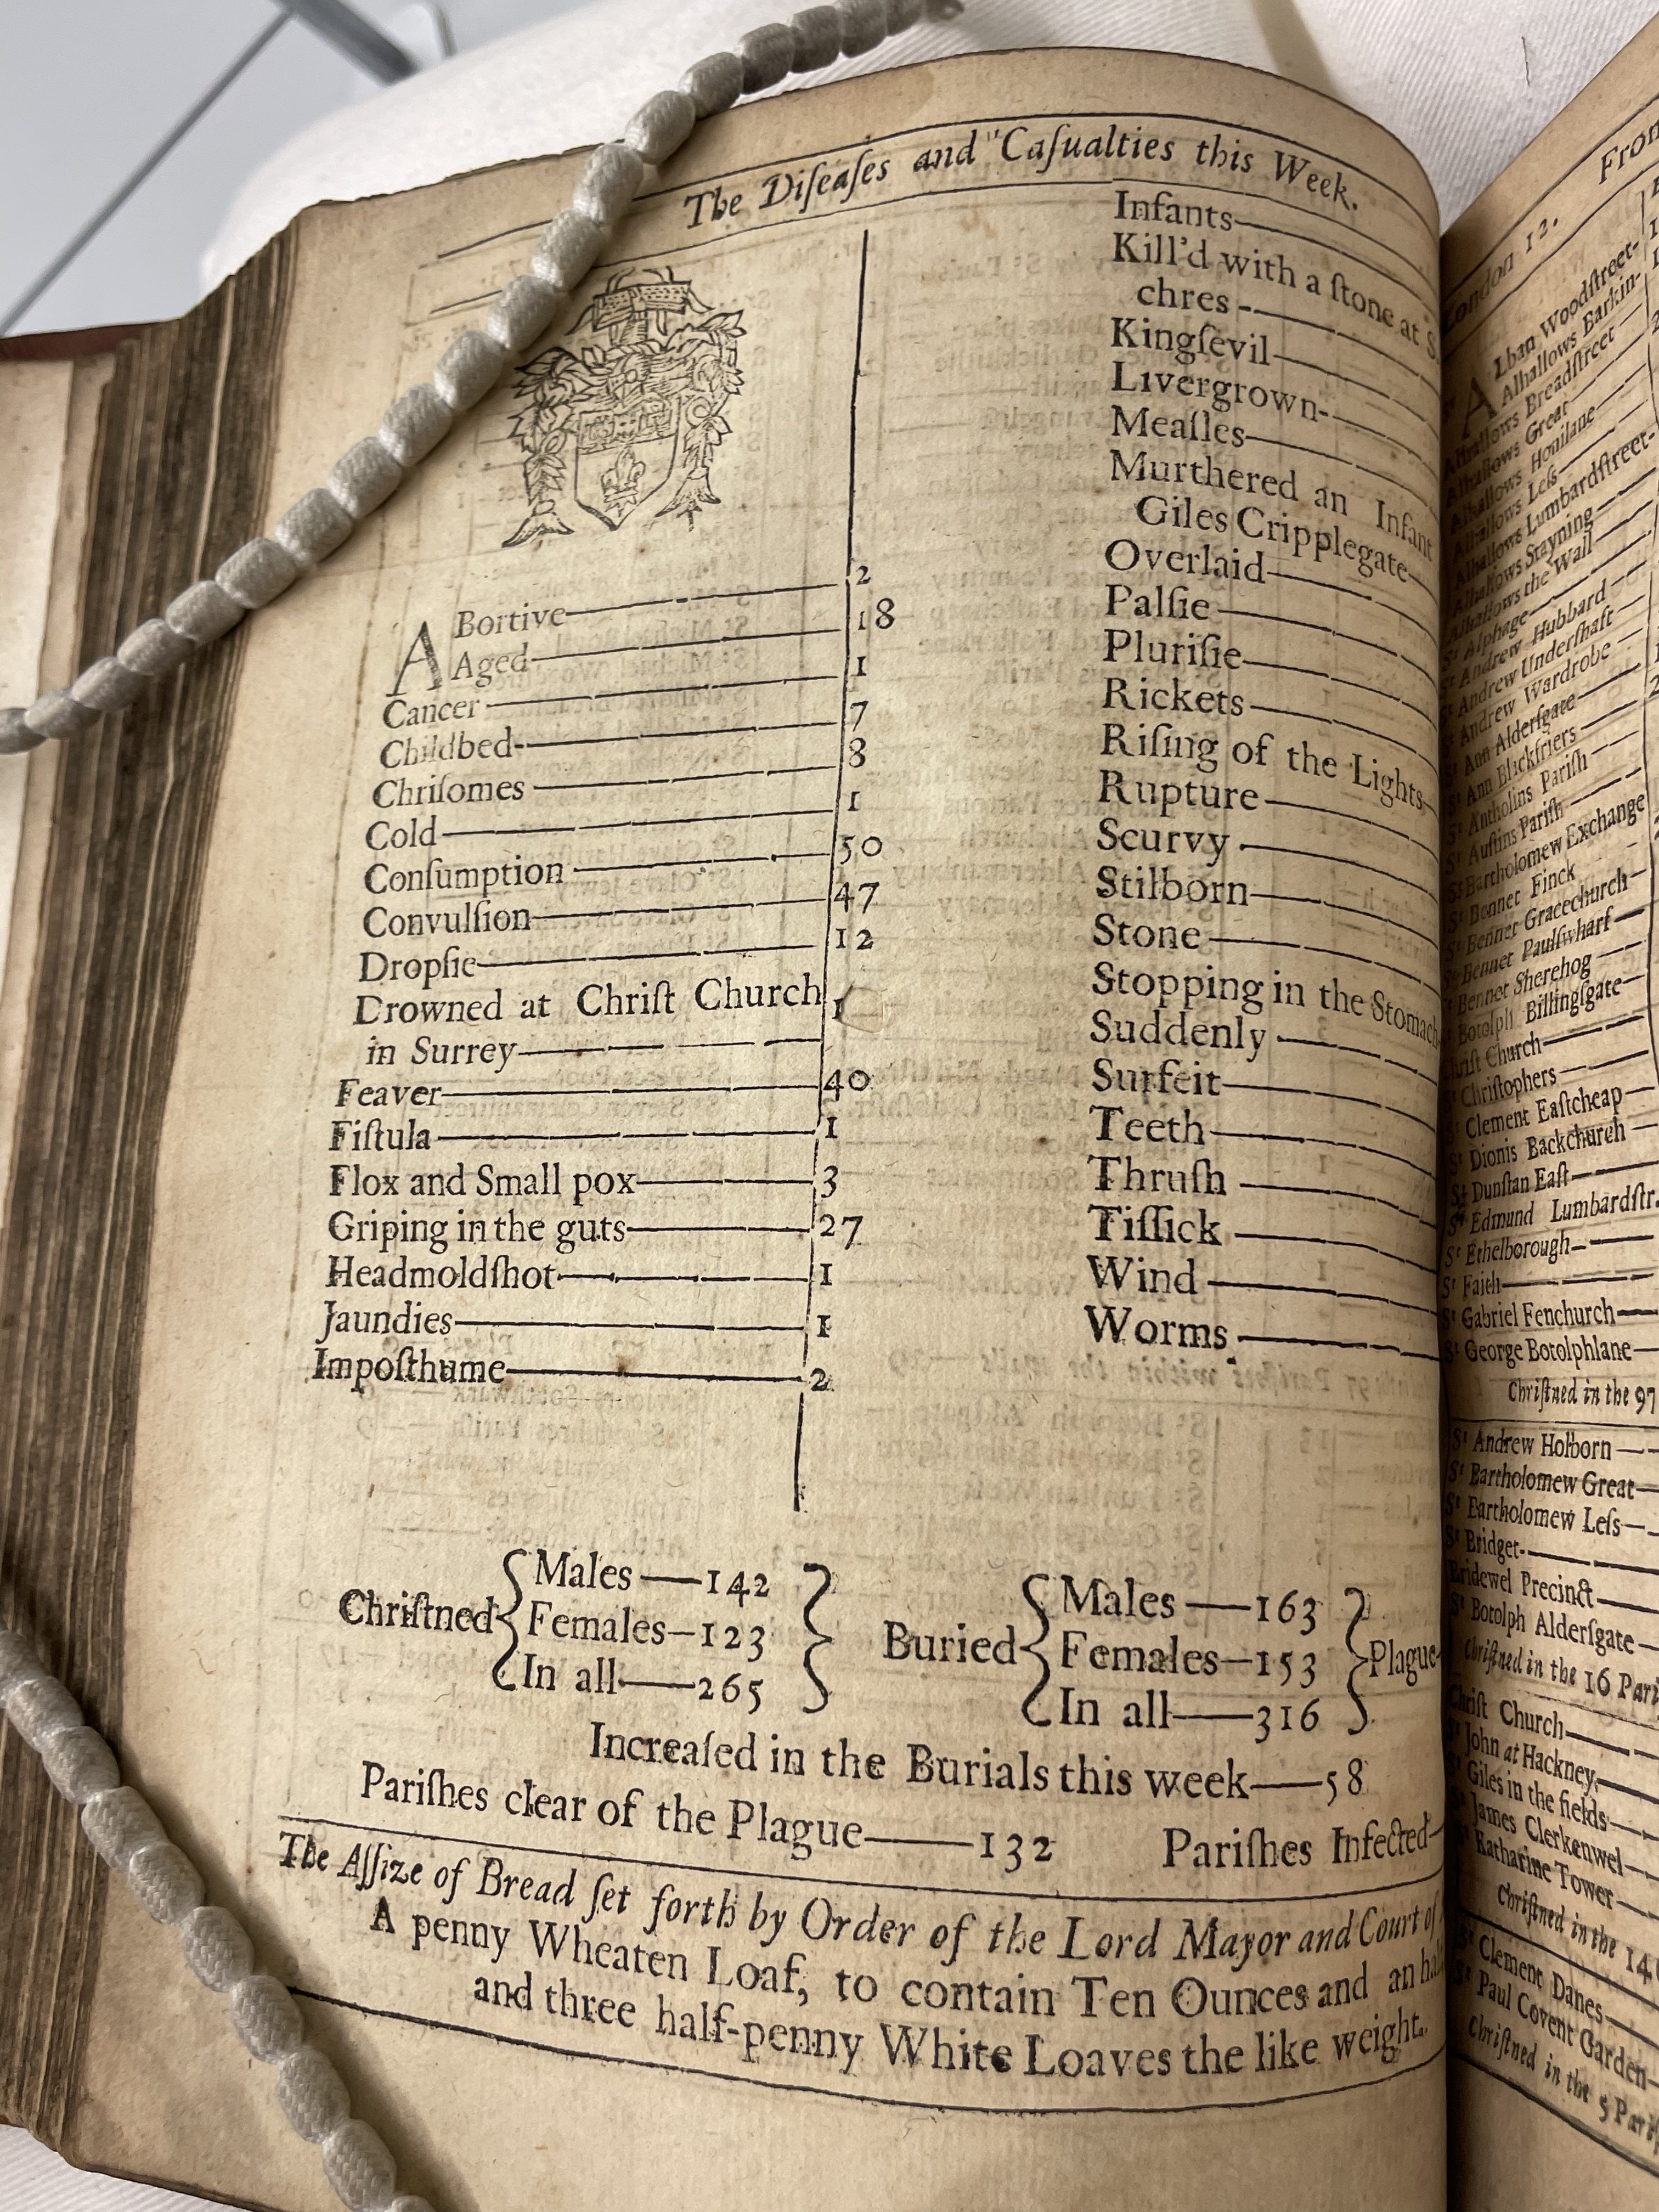 The Diſeaſes and Caſualties this Week.
ABortive 2
Aged 18
Cancer 1
Childbed 7
Chriſomes 8
Cold 1
Conſumption 50
Convulſion 47
Dropſie 12
Drowned at Chriſt Church 1
in Surrey
Feaver 40
Fiſtula 1
Flox and Small pox 3
Griping in the guts 27
Headmoldſhot 1
Jaundies 1
Impoſthume 2
Infants
Kill'd with a ſtone at S.
chres
Kingſevil
Livergrown
Meaſles
Murthered an Infant
Giles Cripplegate
Overlaid
Palſie
Pluriſie
Rickets
Riſing of the Lights
Rupture
Scurvy
Stilborn
Stone
Stopping in the Stomach
Suddenly
Surfeit
Teeth
Thruſh
Tiſſick
Wind
Worms
Chriſtned { Males — 142
Females — 123
In all — 265 }
Buried { Males — 163
Females — 153
In all — 316 } Plague
Increaſed in the Burials this week — 58
Pariſhes clear of the Plague — 132 Pariſhes Infected
The Aſſize of Bread ſet forth by Order of the Lord Mayor and Court of
A penny Wheaten Loaf, to contain Ten Ounces and an
and three half-penny White Loaves the like weight.
London 12. From
ALban Woodſtreet
Alhallows Barkin
Alhallows Breadſtreet
Alhallows Great
Alhallows Honilane
Alhallows Leſs
Alhallows Lumbardſtreet
Alhallows Stayning
Alhallows the Wall
St Alphage
St Andrew Hubbard
St Andrew Underſhaft
St Andrew Wardrobe
St Ann Alderſgate
St Ann Blackfriers
St Antholins Pariſh
St Auſtins Pariſh
St Bartholomew Exchange
St Bennet Finck
St Bennet Gracechurch
St Bennet Paulſwharf
St Bennet Sherehog
St Botolph Billingſgate
Chriſt Church
St Chriſtophers
St Clement Eaſtcheap
St Dionis Backchurch
St Dunſtan Eaſt
St Edmund Lumbardſtr.
St Ethelborough
St Faith
St Gabriel Fenchurch
St George Botolphlane
Chriſtned in the 97
St Andrew Holborn
St Bartholomew Great
St Bartholomew Leſs
St Bridget
Bridewel Precinct
St Botolph Alderſgate
Chriſtned in the 16 Pari
Chriſt Church
St John at Hackney
St Giles in the fields
St James Clerkenwel
St Katharine Tower
Chriſtned in the 14
St Clement Danes
St Paul Covent Garden
Chriſtned in the 5 Pariſ